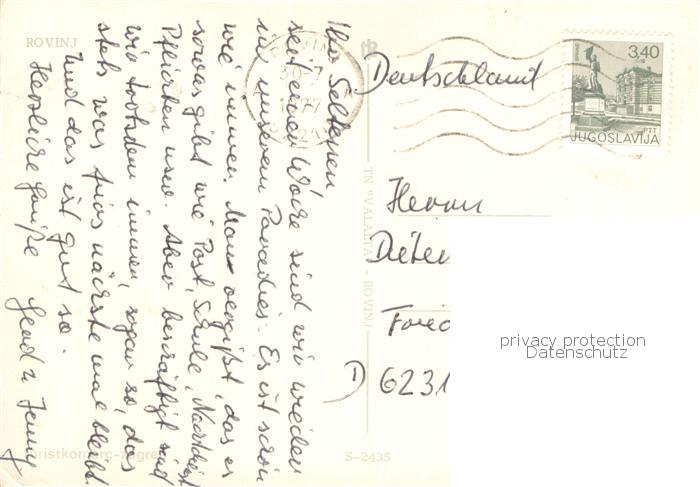 ROVINJ
Ihr Seltenen,
seit einer Woche sind wir wieder
in unserem Paradies. Es ist schön
wie immer. Man vergißt, das es
sowas gibt wie Post, Schule, Nachtdienst
Pflichten usw. Aber beschäftigt sind
wir trotzdem immer, sogar so, das
stets was fürs nächste mal bleibt.
Und das ist gut so.
Herzliche Grüße
Turistkomerc-zagreb
TN "VALALTA" - ROVINJ
S-2435
3,40
PTT
JUGOSLAVIJA
Deutschland
Herrn
Dieter
D 6231
privacy protection
Datenschutz